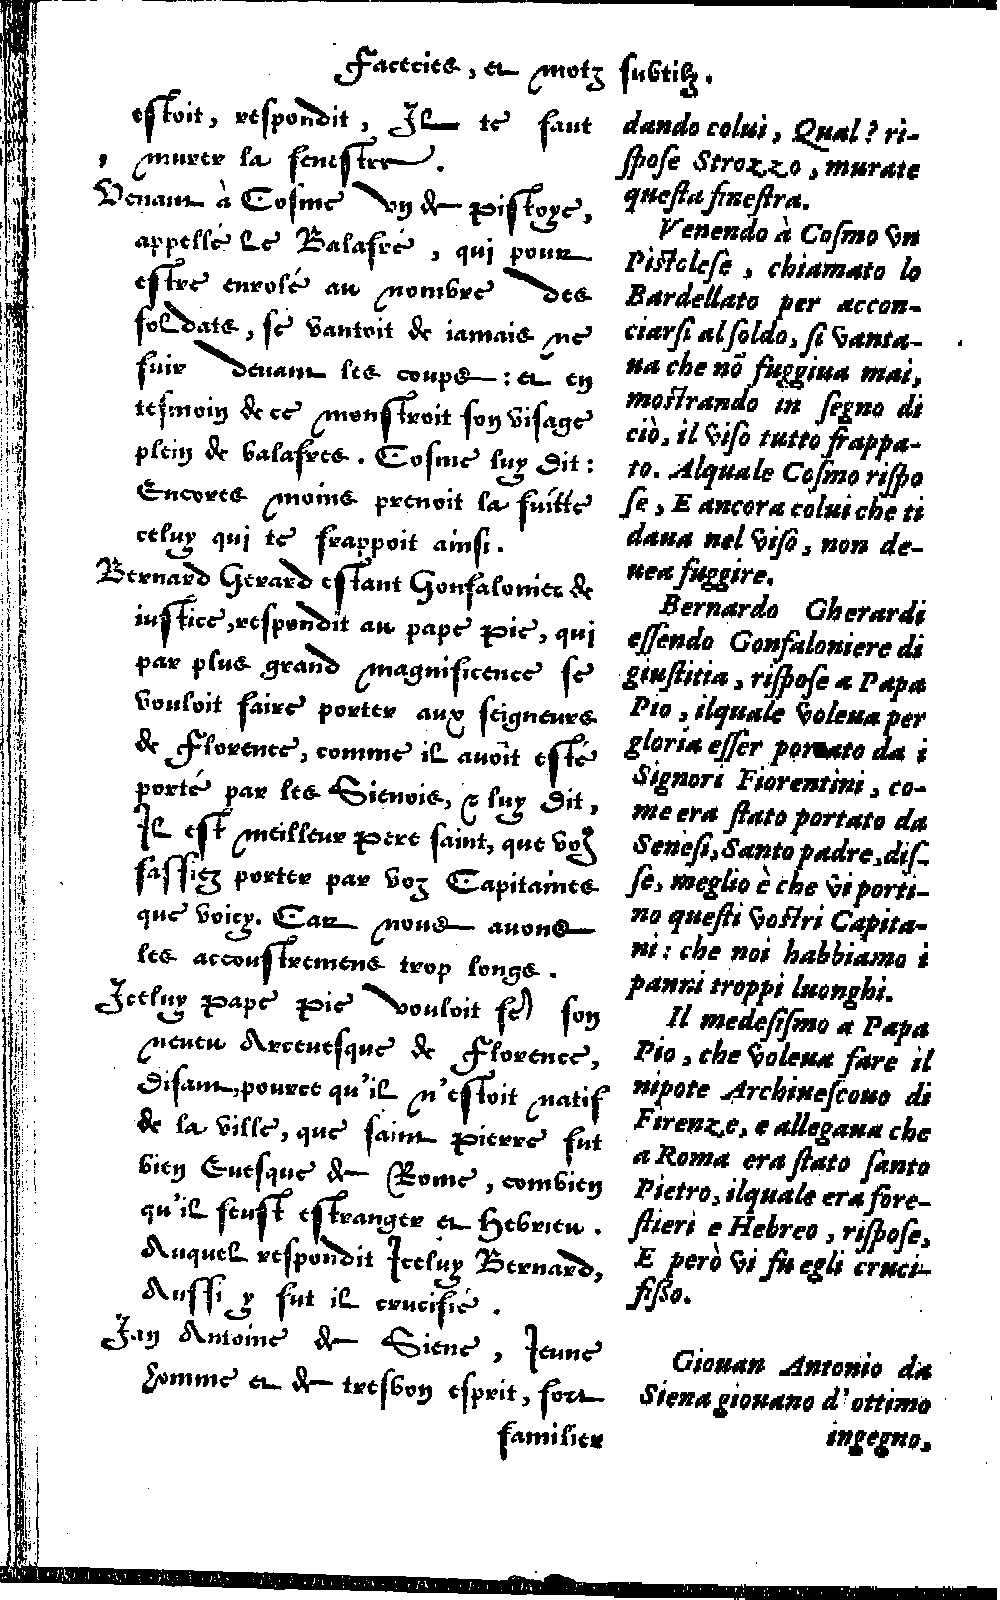 Facecies, et motz subtilz.
estoit, respondit, Il te faut
murer la fenestre.
Venant à Cosme vn de Pistoye,
appellé Le Balafré, qui pour
estre enrolé au nombre des
soldats, se vantoit de iamais ne
fuir deuant les coups: et en
tesmoin de ce monstroit son visage
plein de balafres. Cosme luy dit:
Encores moins prenoit la fuitte
celuy qui te frappoit ainsi.
Bernard Gerard estant Gonfalonier de
iustice, respondit au pape Pie, qui
par plus grand magnificence se
vouloit faire porter aux seigneurs
de Florence, comme il auoit esté
porté par les Sienois, & luy dit,
Il est meilleur Pere saint, que vo9
fassiez porter par voz Capitaines
que voicy. Car nous auons
les accoustremens trop longs.
Iceluy Pape Pie vouloit fe) son
neueu Arceuesque de Florence,
disant, pource qu'il n'estoit natif
de la ville, que saint Pierre fut
bien Euesque de Rome, combien
qu'il feust estranger et Hebrieu.
Auquel respondit Iceluy Bernard,
Aussi y fut il crucifié.
Ian Antoine de Siene, Ieune
homme et de tresbon esprit, fort
familier
dando colui, Qual? ri-
spose Strozzo, murate
questa finestra.
Venendo à Cosmo vn
Pistolese, chiamato lo
Bardellato per accon-
ciarsi al soldo, si vanta-
ua che nõ fuggiua mai,
mostrando in segno di
ciò, il viso tutto frappa-
to. Alquale Cosmo rispo
se, E ancora colui che ti
daua nel viso, non de-
uea fuggire.
Bernardo Gherardi
essendo Gonfaloniere di
giustitia, rispose a Papa
Pio, ilquale voleua per
gloria esser portato da i
Signori Fiorentini, co-
me era stato portato da
Senesi, Santo padre, dis-
se, meglio è che vi porti-
no questi vostri Capita-
ni: che noi habbiamo i
panni troppi luonghi.
Il medesismo a Papa
Pio, che voleua fare il
nipote Archiuescouo di
Firenze, e allegaua che
a Roma era stato santo
Pietro, ilquale era fore-
stieri e Hebreo, rispose,
E però vi fu egli cruci-
fisso.
Giouan Antonio da
Siena giouano d'ottimo
ingegno,